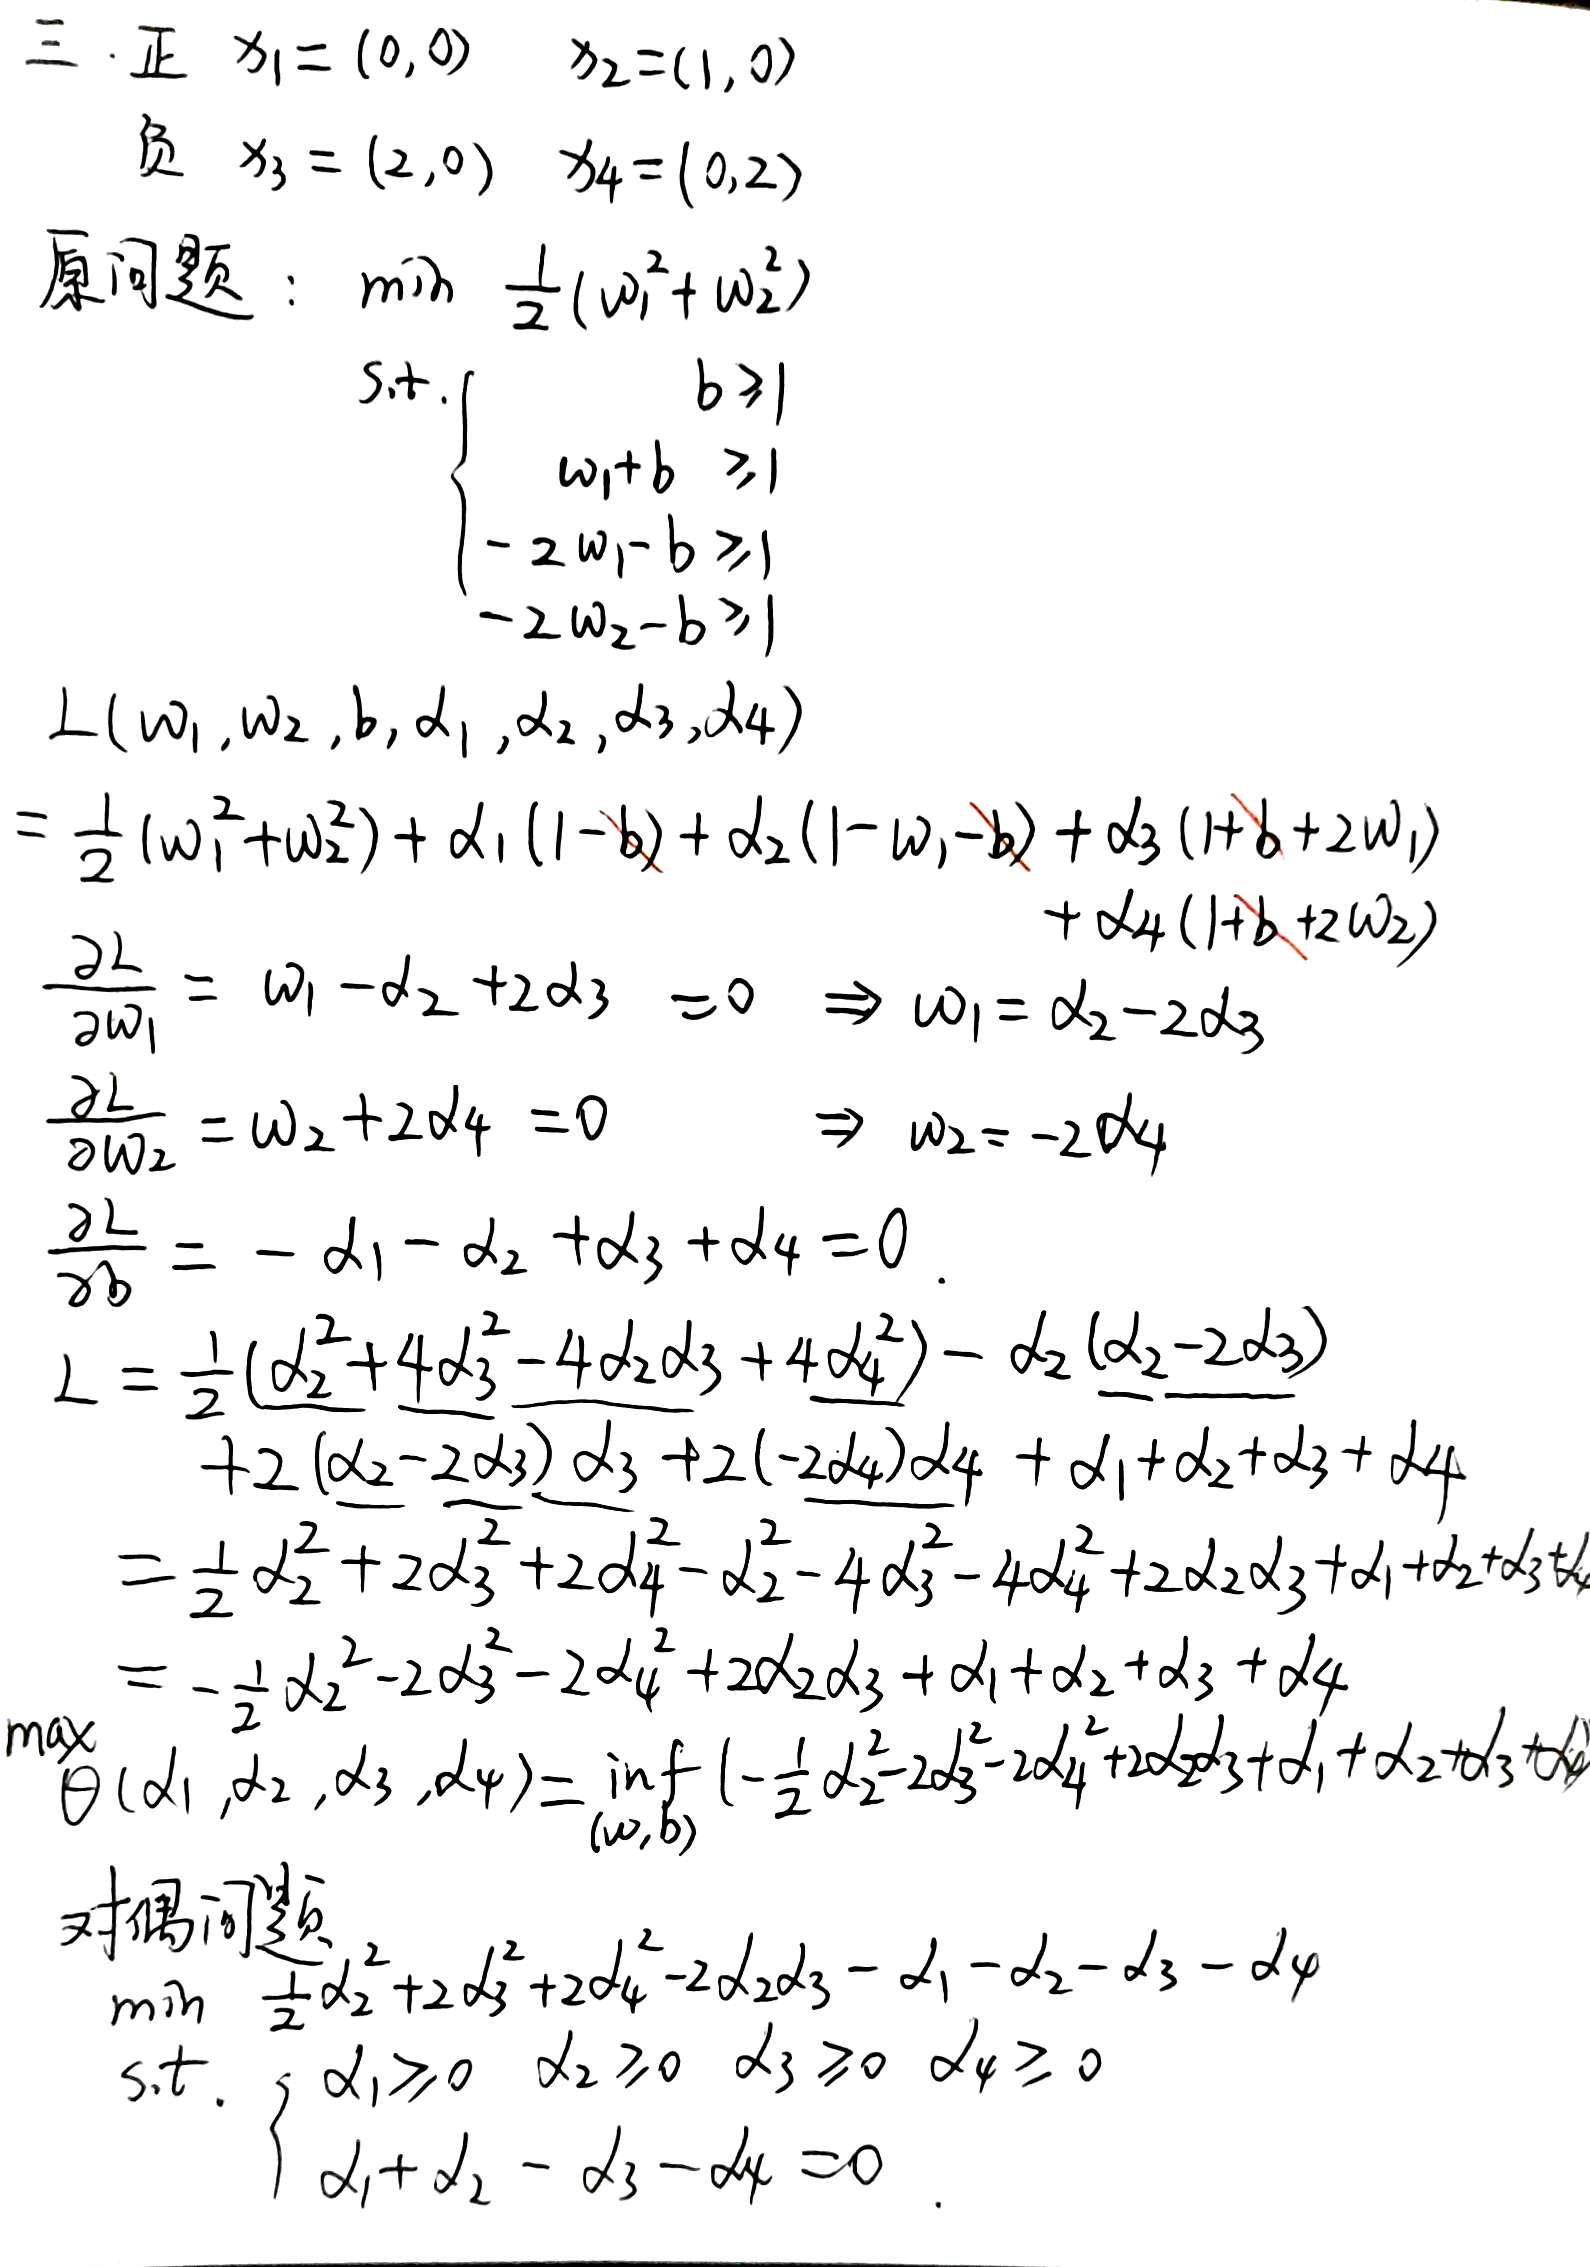 三. 正 x₁=(0,0) x₂=(1,0)
负 x₃=(2,0) x₄=(0,2)
原问题: min 1/2(w₁²+w₂²)
s.t. { b≥1
w₁+b ≥1
-2w₁-b≥1
-2w₂-b≥1
L(w₁,w₂,b,α₁,α₂,α₃,α₄)
= 1/2(w₁²+w₂²)+α₁(1-b)+α₂(1-w₁-b)+α₃(1+b+2w₁)
+α₄(1+b+2w₂)
∂L/∂w₁ = w₁-α₂+2α₃ =0 ⇒ w₁=α₂-2α₃
∂L/∂w₂ = w₂+2α₄ =0 ⇒ w₂=-2α₄
∂L/∂b = -α₁-α₂+α₃+α₄=0.
L = 1/2(α₂²+4α₃²-4α₂α₃+4α₄²)-α₂(α₂-2α₃)
+2(α₂-2α₃)α₃+2(-2α₄)α₄+α₁+α₂+α₃+α₄
= 1/2α₂²+2α₃²+2α₄²-α₂²-4α₃²-4α₄²+2α₂α₃+α₁+α₂+α₃+α₄
= -1/2α₂²-2α₃²-2α₄²+2α₂α₃+α₁+α₂+α₃+α₄
max θ(α₁,α₂,α₃,α₄)= inf(w,b) (-1/2α₂²-2α₃²-2α₄²+2α₂α₃+α₁+α₂+α₃+α₄)
对偶问题
min 1/2α₂²+2α₃²+2α₄²-2α₂α₃-α₁-α₂-α₃-α₄
s.t. { α₁≥0 α₂≥0 α₃≥0 α₄≥0
α₁+α₂-α₃-α₄=0.